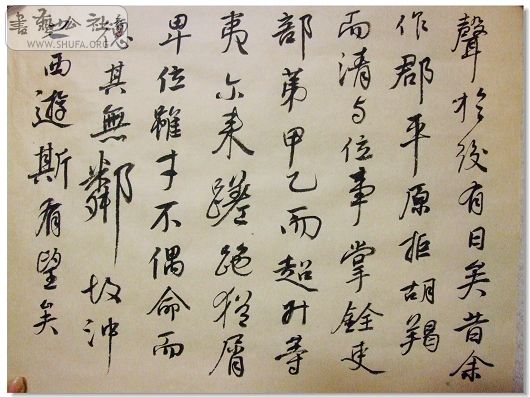 聲於後有日矣昔余
作郡平原拒胡羯
而清与位事掌銓吏
部第甲乙而超升等
夷尔来蹉跎猶屑
卑位雖才不偶命而
德其無鄰故沖
之西遊斯有望矣
書藝公社
WWW.SHUFA.ORG